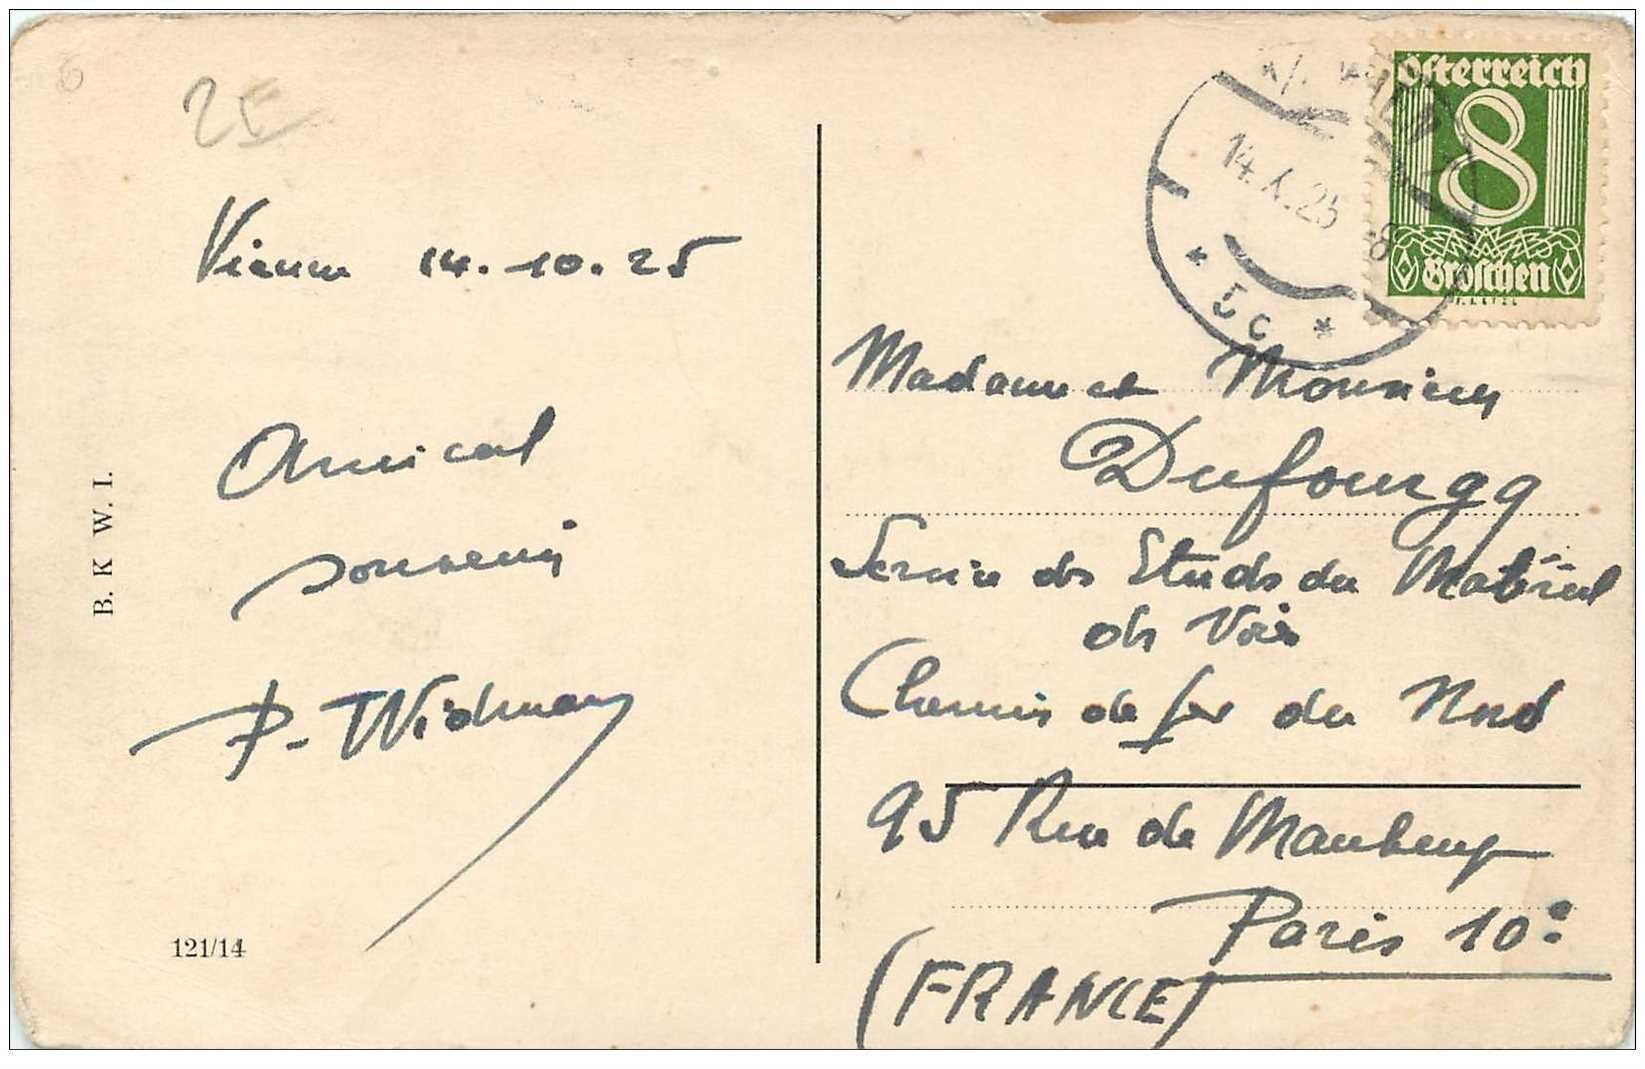 6
2E
Vienne 14.10.25
Amical
souvenir
P. Widman
B. K. W. I.
121/14
WIEN
14.X.25
8
* 5c *
Österreich
8
Groschen
Madame et Monsieur
Dufourgq
Service des Etudes du Matériel
des Voies
Chemins de fer du Nord
95 Rue de Maubeuge
Paris 10e
(FRANCE)